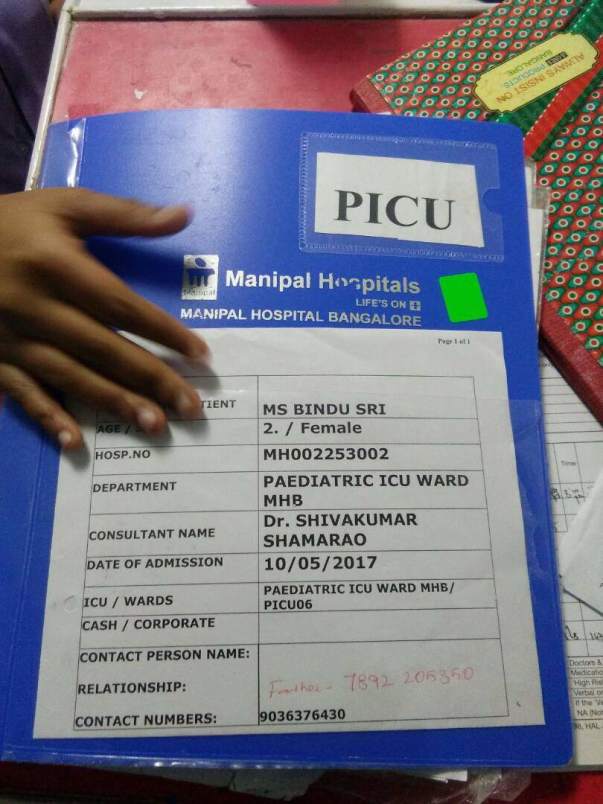 ALWAYS INSIST ON
PRODUCTS
BANGALORE
PICU
Manipal Hospitals
LIFE'S ON
MANIPAL HOSPITAL BANGALORE
Page 1 of 1
TIENT MS BINDU SRI
AGE / 2. / Female
HOSP.NO MH002253002
DEPARTMENT PAEDIATRIC ICU WARD
MHB
CONSULTANT NAME Dr. SHIVAKUMAR
SHAMARAO
DATE OF ADMISSION 10/05/2017
ICU / WARDS PAEDIATRIC ICU WARD MHB/
PICU06
CASH / CORPORATE
CONTACT PERSON NAME:
RELATIONSHIP: Father - 7892 205350
CONTACT NUMBERS: 9036376430
Time
Doctors &
Medicatio
High Ris
Verbal or
If the 'Ve
NA (Not